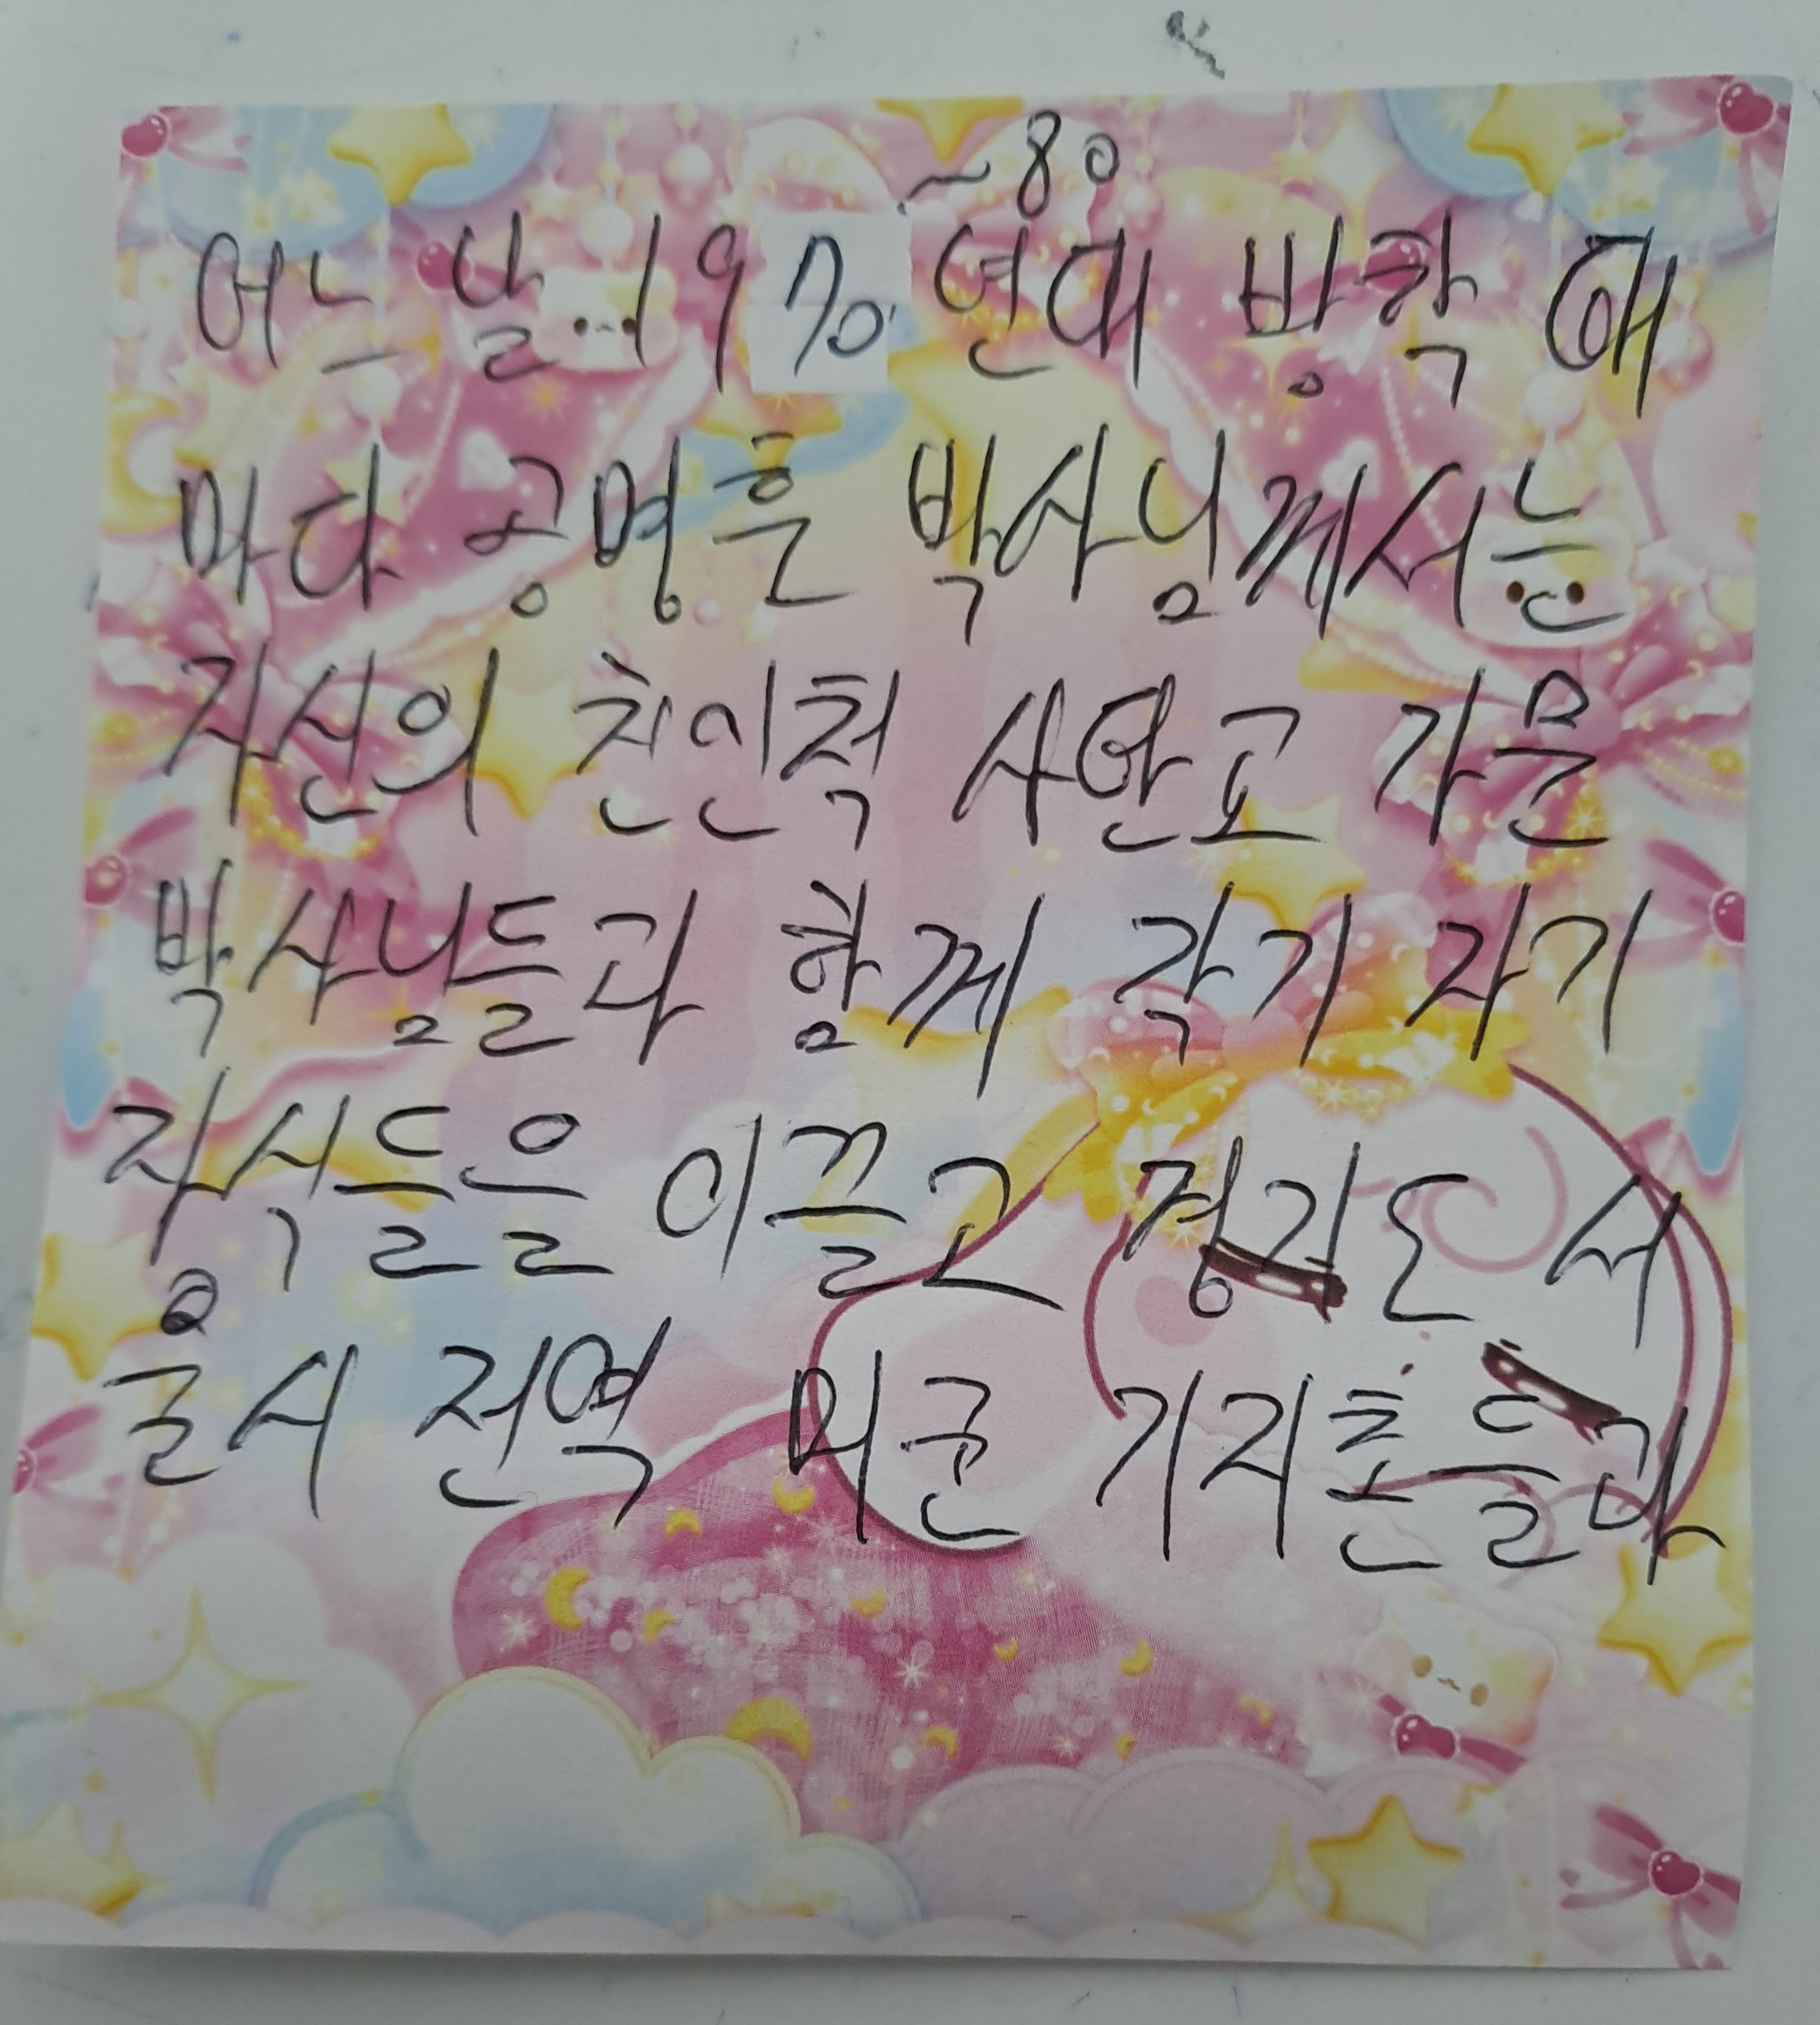 ~80
어느 날 1970 연대 방학 때
마다 공명훈 박사님께서는
자신의 친인척 사단고 가문
박사님들과 함께 각기 자기
징식들을 이끌고 경기도 서
울시 전역 미군 기지촌들과